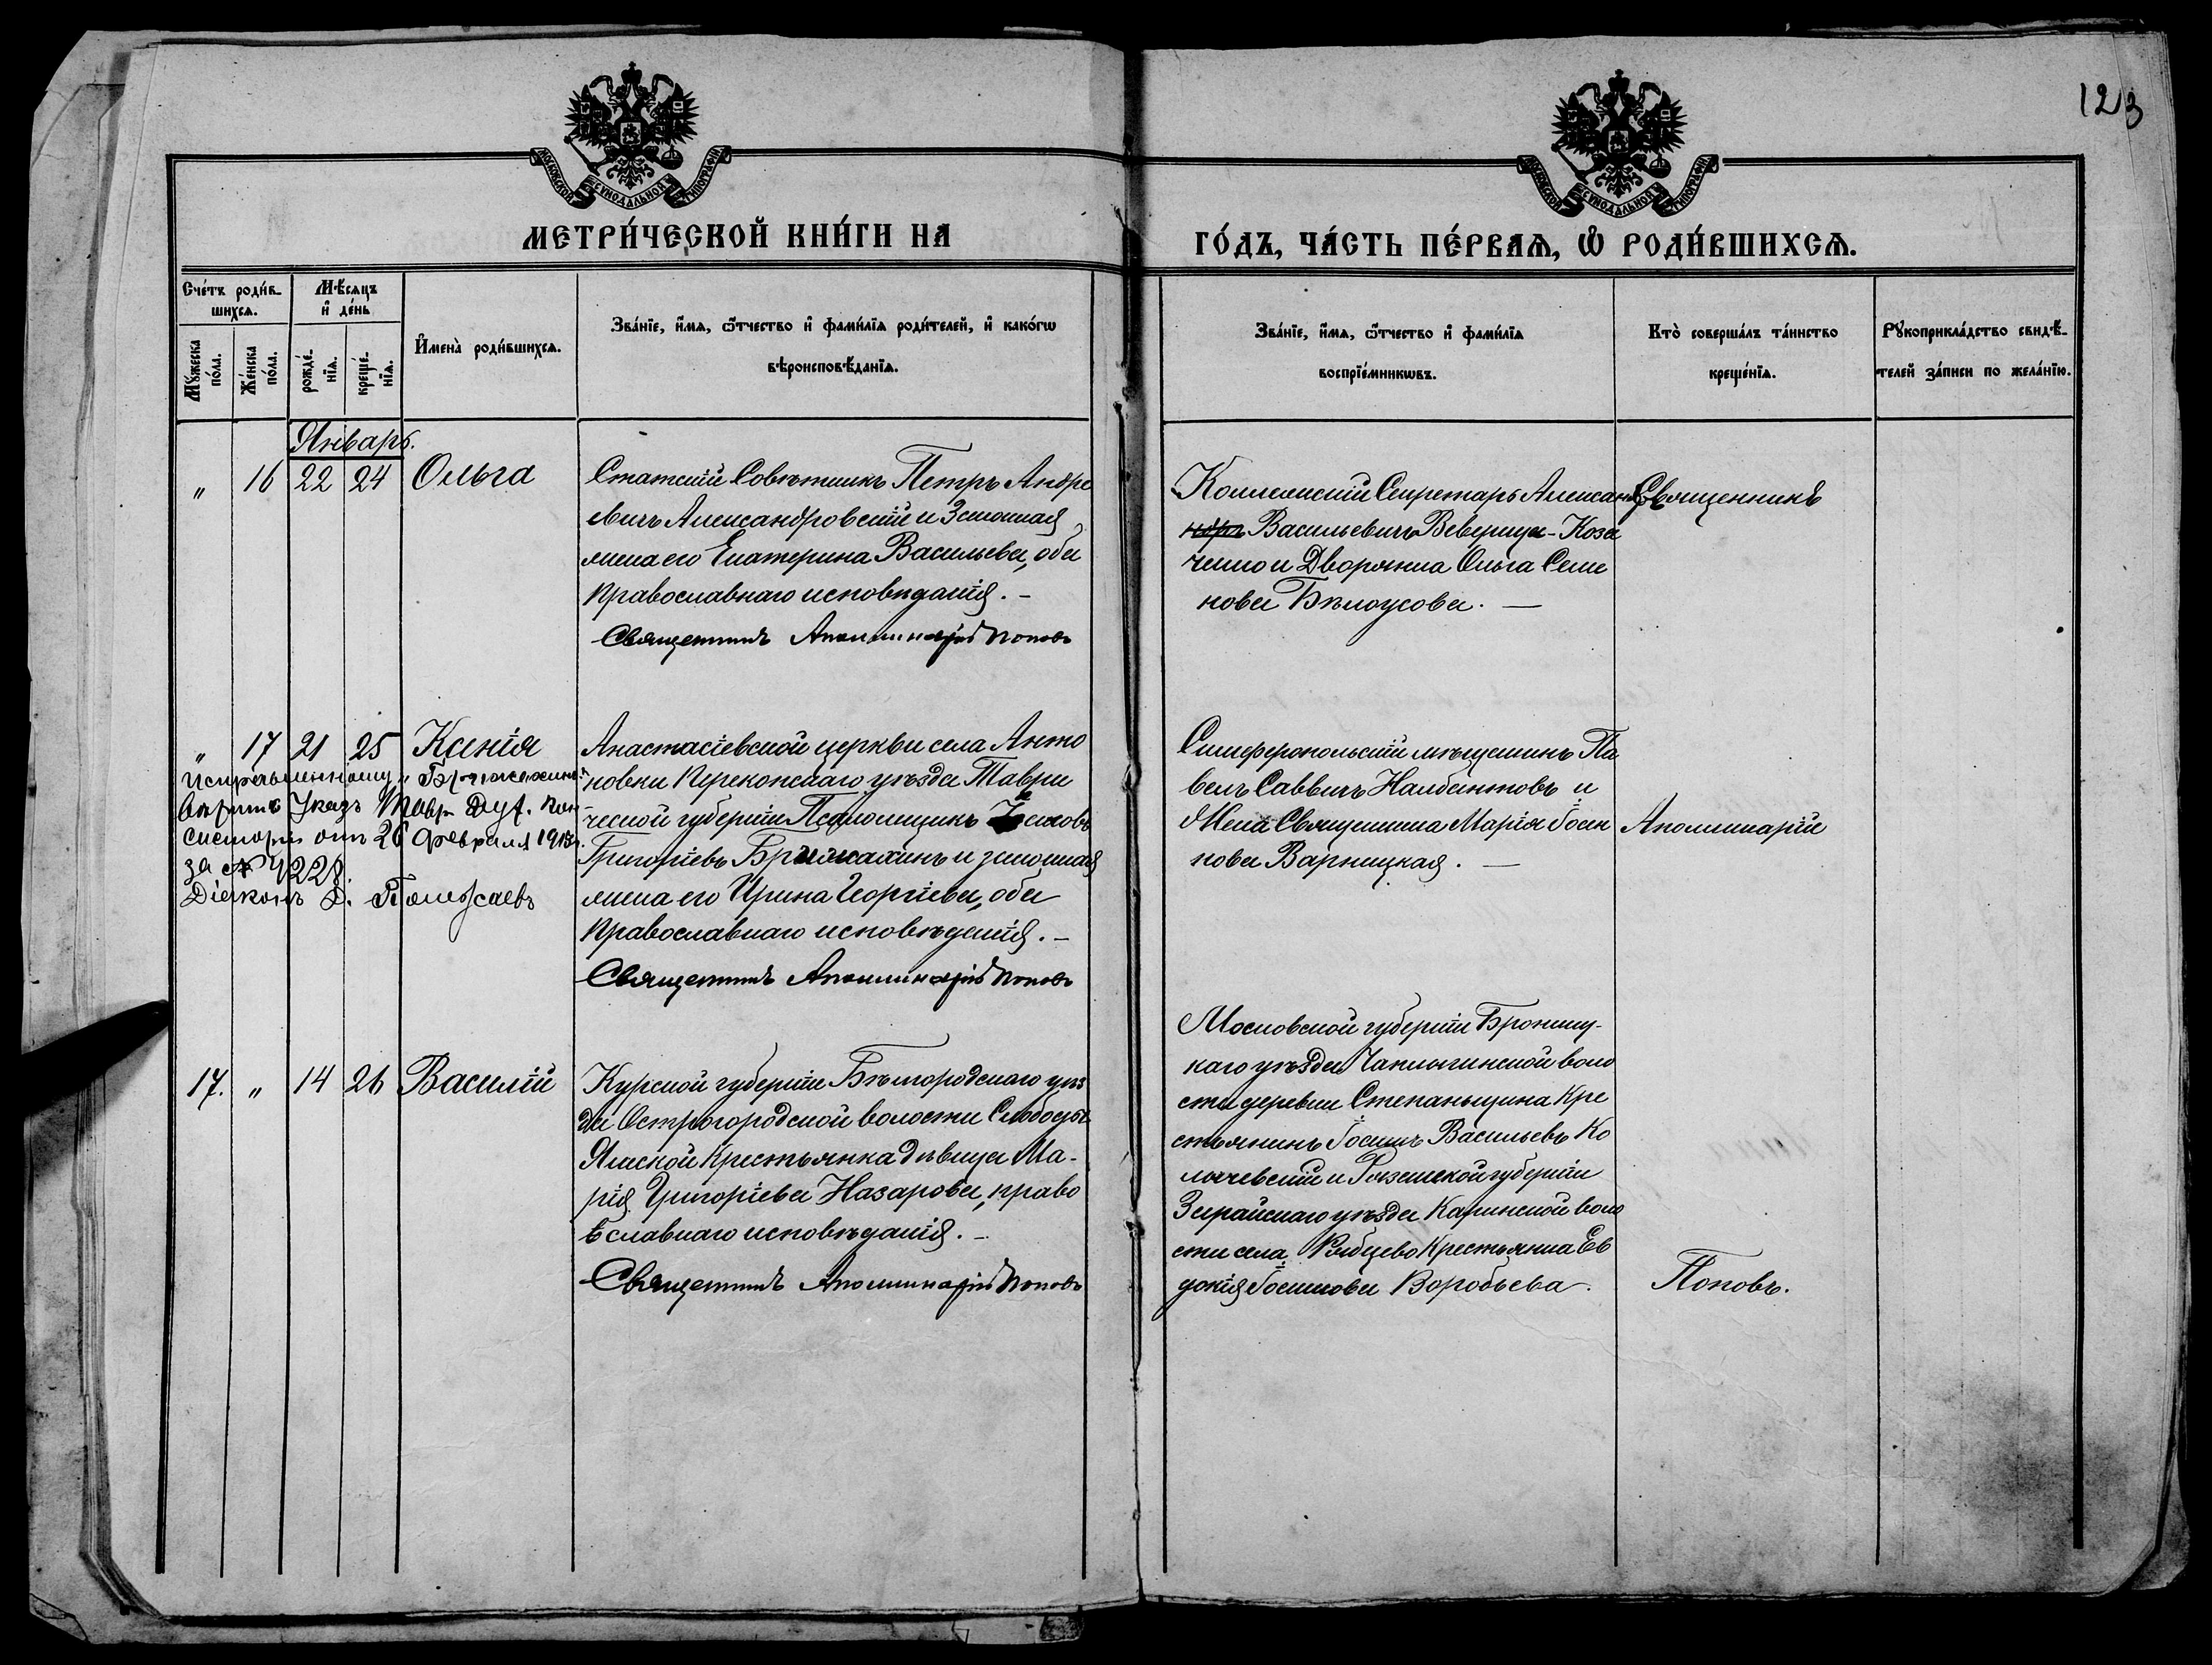 123
МОСКОВСКОЙ СУНОДАЛЬНОЙ ТИПОГРАФІИ
МОСКОВСКОЙ СУНОДАЛЬНОЙ ТИПОГРАФІИ
МЕТРИ́ЧЕСКОЙ КНИ́ГИ НА
ГО́ДЪ, ЧА́СТЬ ПЕ́РВАѦ, Ѡ҆ РОДИ́ВШИХСѦ.
Сче́тъ роди́в-
шихсѧ.
Мѹ́жеска по́ла.
Же́нска по́ла.
Мѣ́сѧцъ
и҆ де́нь
рожде́-
нїѧ.
креще́-
нїѧ.
И҆мена̀ роди́вшихсѧ.
Зва́нїе, и҆́мѧ, ѻ҆́тчество и҆ фами́лїѧ роди́телей, и҆ како́гѡ
вѣроисповѣ́данїѧ.
Зва́нїе, и҆́мѧ, ѻ҆́тчество и҆ фами́лїѧ
воспрїе́мникѡвъ.
Кто̀ соверша́лъ та́инство
креще́нїѧ.
Рѹкоприкла́дство свидѣ́-
телей за́писи по жела́нїю.
Январь.
" 16 22 24 Ольга
Статскій Совѣтникъ Петръ Андре
евичъ Александровскій и Законная
жена его Екатерина Васильева, оба
православнаго исповѣданія. -
Священникъ Аполлинарій Поповъ
Коллежскій Секретарь Алексан
ндръ Васильевичъ Веверица-Коза
ченко и Дворянка Ольга Семе
нова Бѣлоусова. —
Священникъ
" 17 21 25 Ксенія
Исправленному „Бряжахинъ"
вѣрить Указъ Тавр. Дух. Кон
систоріи отъ 26 Февраля 1913 г.
за № 4228.
Діаконъ
Анастасіевской церкви села Анто
новки Перекопскаго уѣзда Таври
ческой губерніи Псаломщикъ Іаковъ
Григоріевъ Бряжахинъ и законная
жена его Ирина Георгіева, оба
Православнаго исповѣданія. -
Священникъ Аполлинарій Поповъ
Симферопольскій мѣщанинъ Па
велъ Саввичъ Налбантовъ и
Жена Священника Марія Іоси
нова Варницкая. —
Аполлинарій
17. " 14 26 Василій
Курской губерніи Бѣлгородскаго уѣз
да Острогородской волости Слободы
Ямской Крестьянка дѣвица Ма-
рія Григоріева Назарова, право
славнаго исповѣданія. -
Священникъ Аполлинарій Поповъ
Московской губерніи Бронниц-
каго уѣзда Чаплыгинской воло
сти деревни Степаньщина Кре
стьянинъ Іосифъ Васильевъ Ко
лычевскій и Рязанской губерніи
Зарайскаго уѣзда Каринской воло
сти села Рябцево Крестьянка Ев
докія Іосифова Воробьева.
Поповъ.